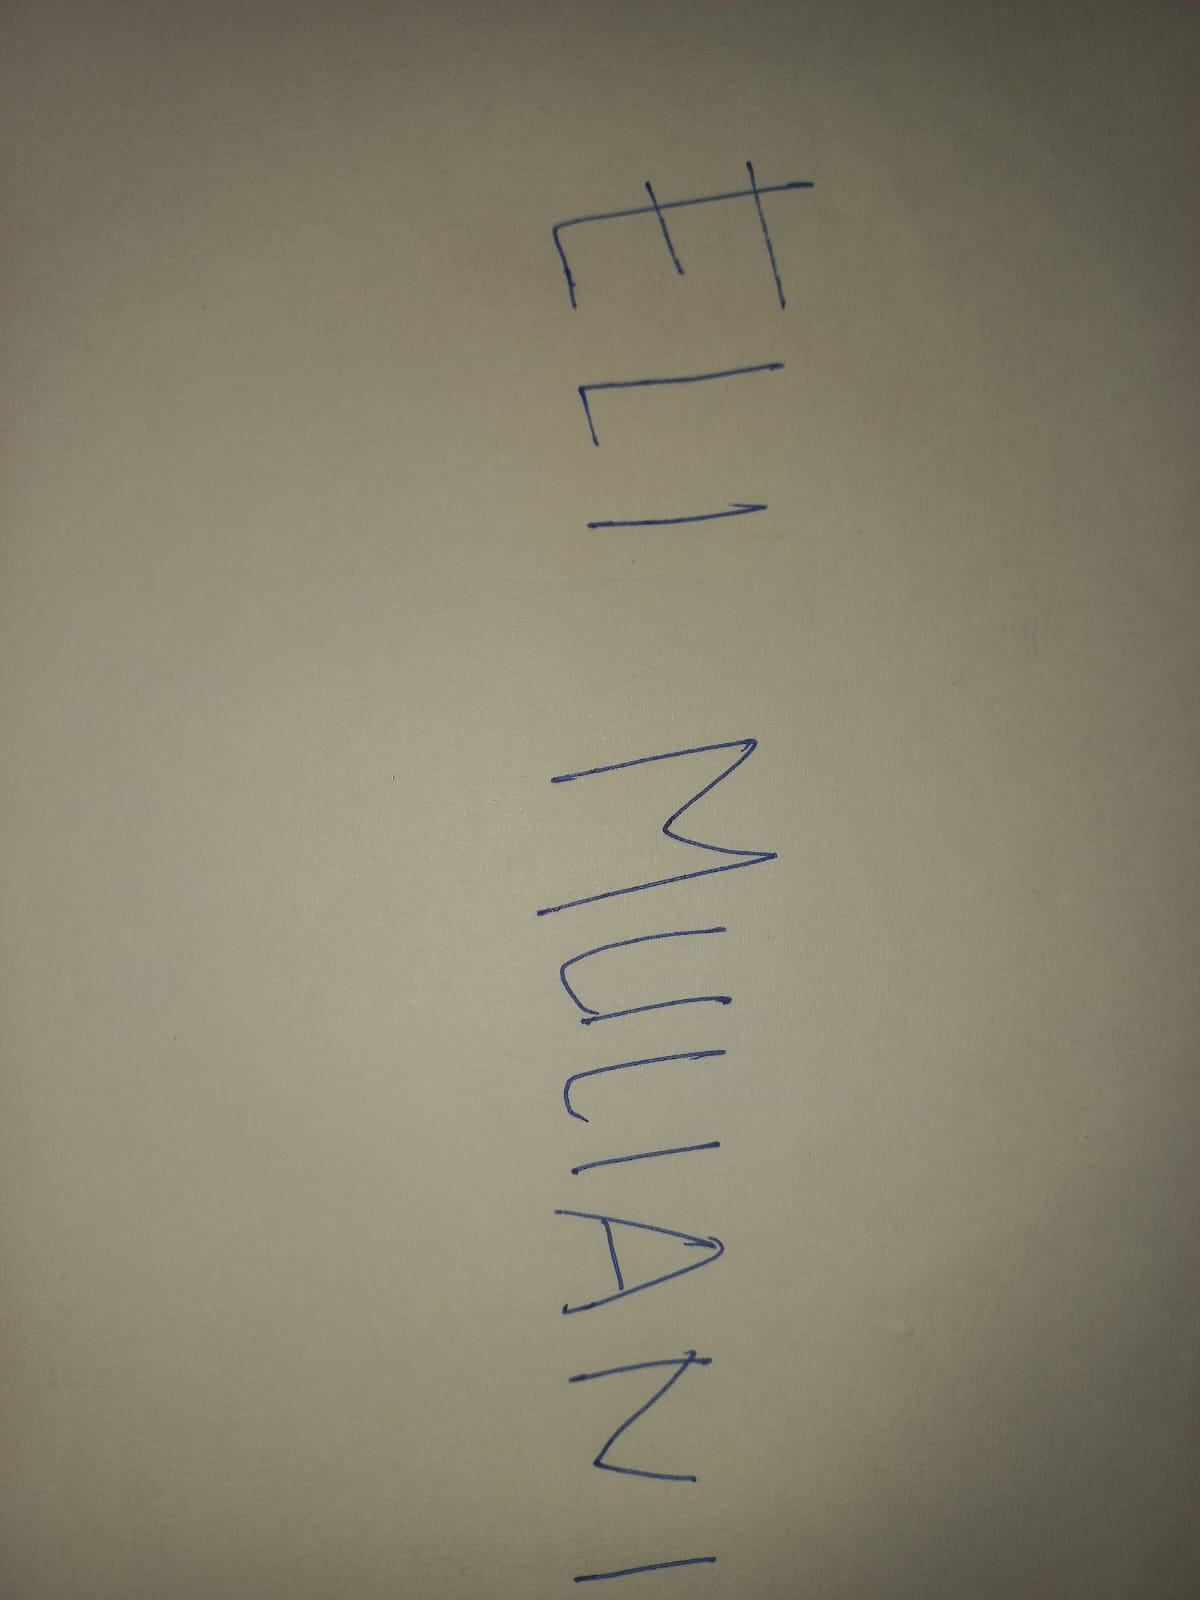 ELI MULIANI